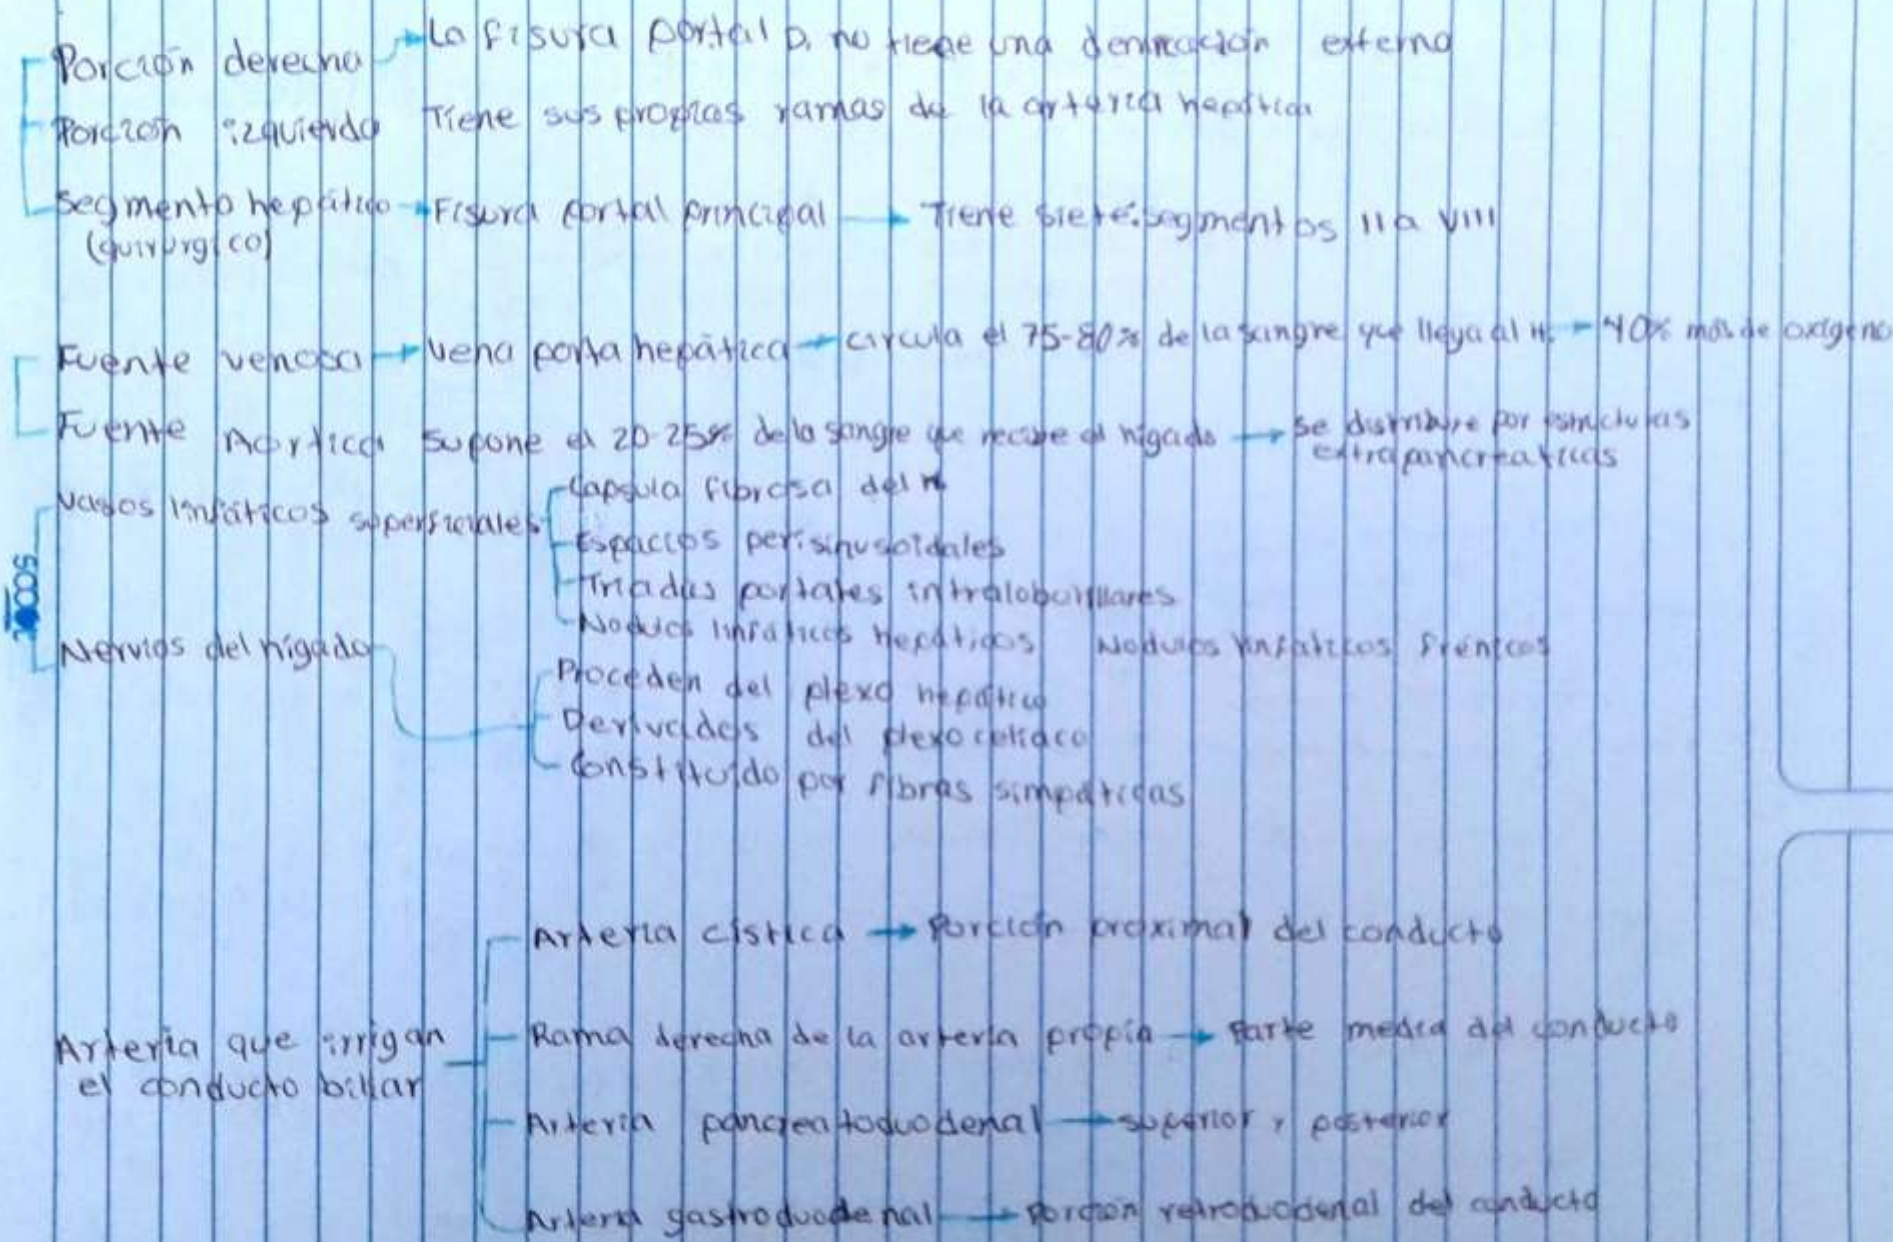 Porción derecha → La fisura portal D. no tiene una demicación externa
Porción izquierda Tiene sus propias ramas de la arteria hepática
Segmento hepático → Fisura portal principal → Tiene siete segmentos II a VIII
(quirúrgico)
Fuente venosa → Vena porta hepática → circula el 75-80% de la sangre que llega al H. → 40% más de oxígeno
Fuente Aórtica Supone el 20-25% de la sangre que recibe el hígado → Se distribuye por estructuras
extrapancreaticas
Vasos linfáticos superficiales
Capsula fibrosa del H
Espacios perisinusoidales
Triadas portales intralobulillares
Nodulos linfáticos hepáticos Nodulos linfaticos frénicos
Nervios del hígado
Proceden del plexo hepático
Derivados del plexo celiaco
Constituído por fibras simpáticas
Arteria que irrigan
el conducto biliar
Arteria cística → Porción proximal del conducto
Rama derecha de la arteria propia → Parte media del conducto
Arteria pancreatoduodenal → superior y posterior
Arteria gastroduodenal → Porción retroduodenal del conducto